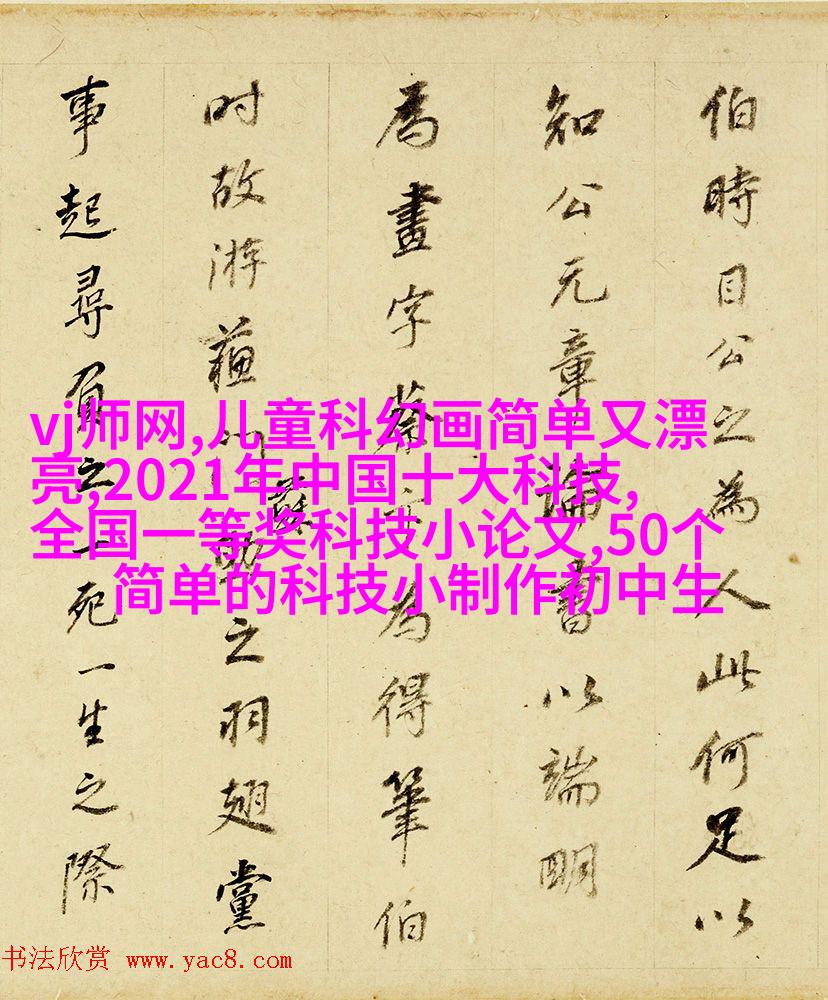 伯時目公之為人此何足以
知公元章論書以端明
為畫字蔡為得筆伯
时故游蘓门之羽翅黨
事起尋負之一死一生之際
vj师网,儿童科幻画简单又漂
亮,2021年中国十大科技,
全国一等奖科技小论文,50个
简单的科技小制作初中生
书法欣赏 www.yac8.com